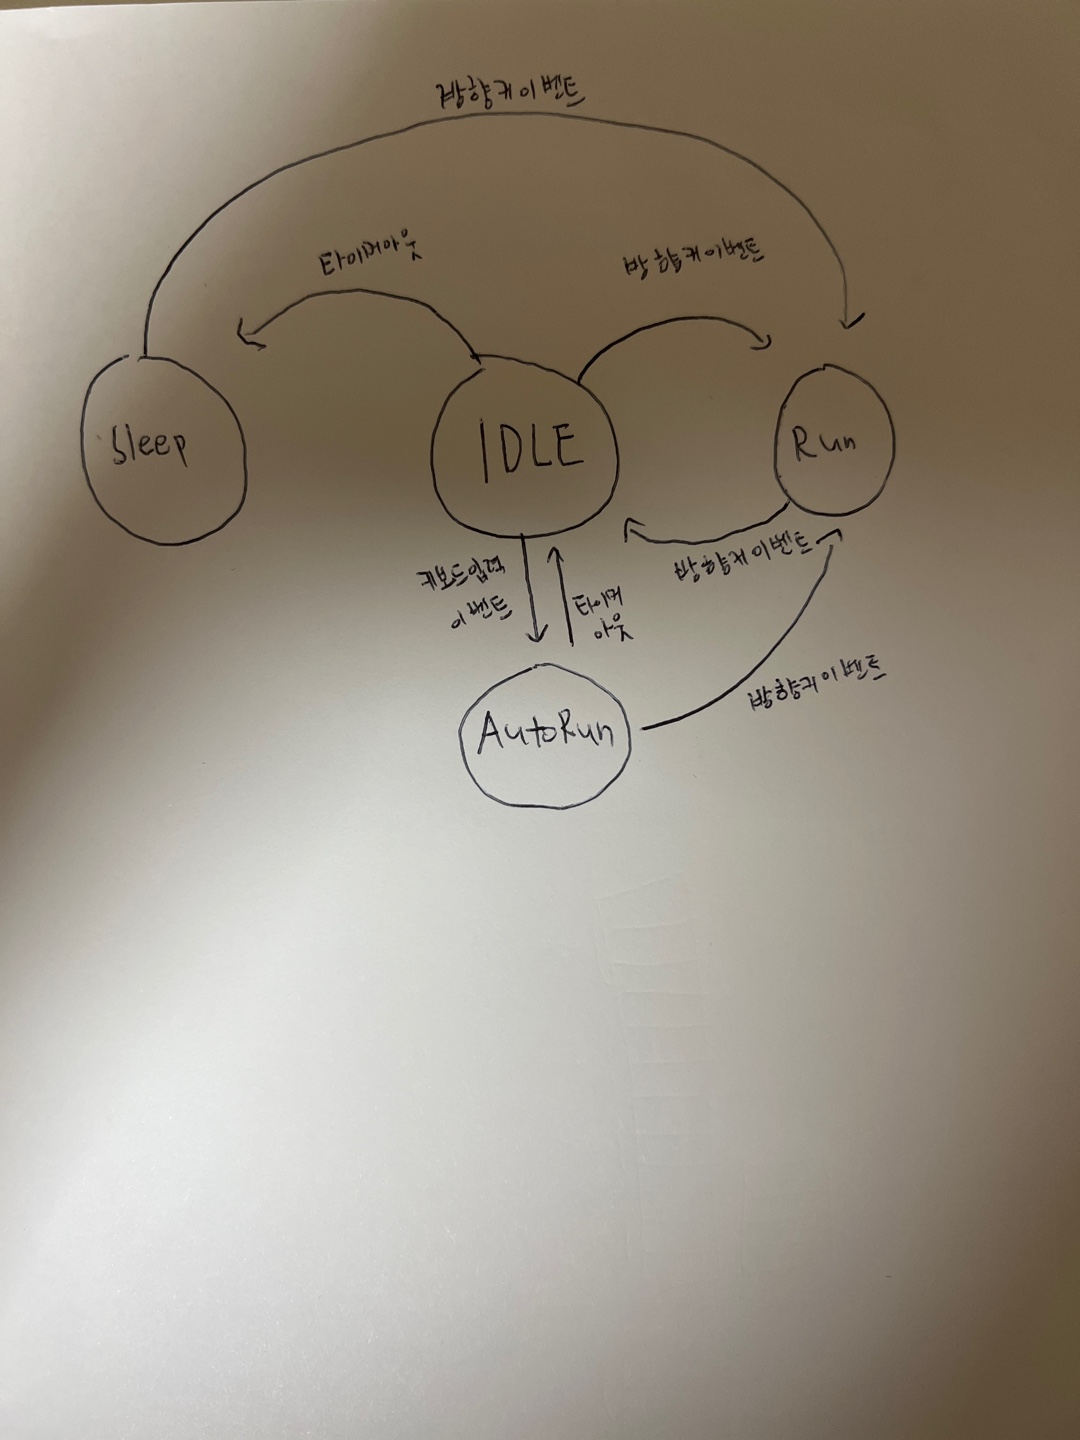 방향키 이벤트
타이머아웃
방향키 이벤트
Sleep
IDLE
Run
방향키 이벤트
키보드입력
이벤트
타이머
아웃
방향키 이벤트
AutoRun